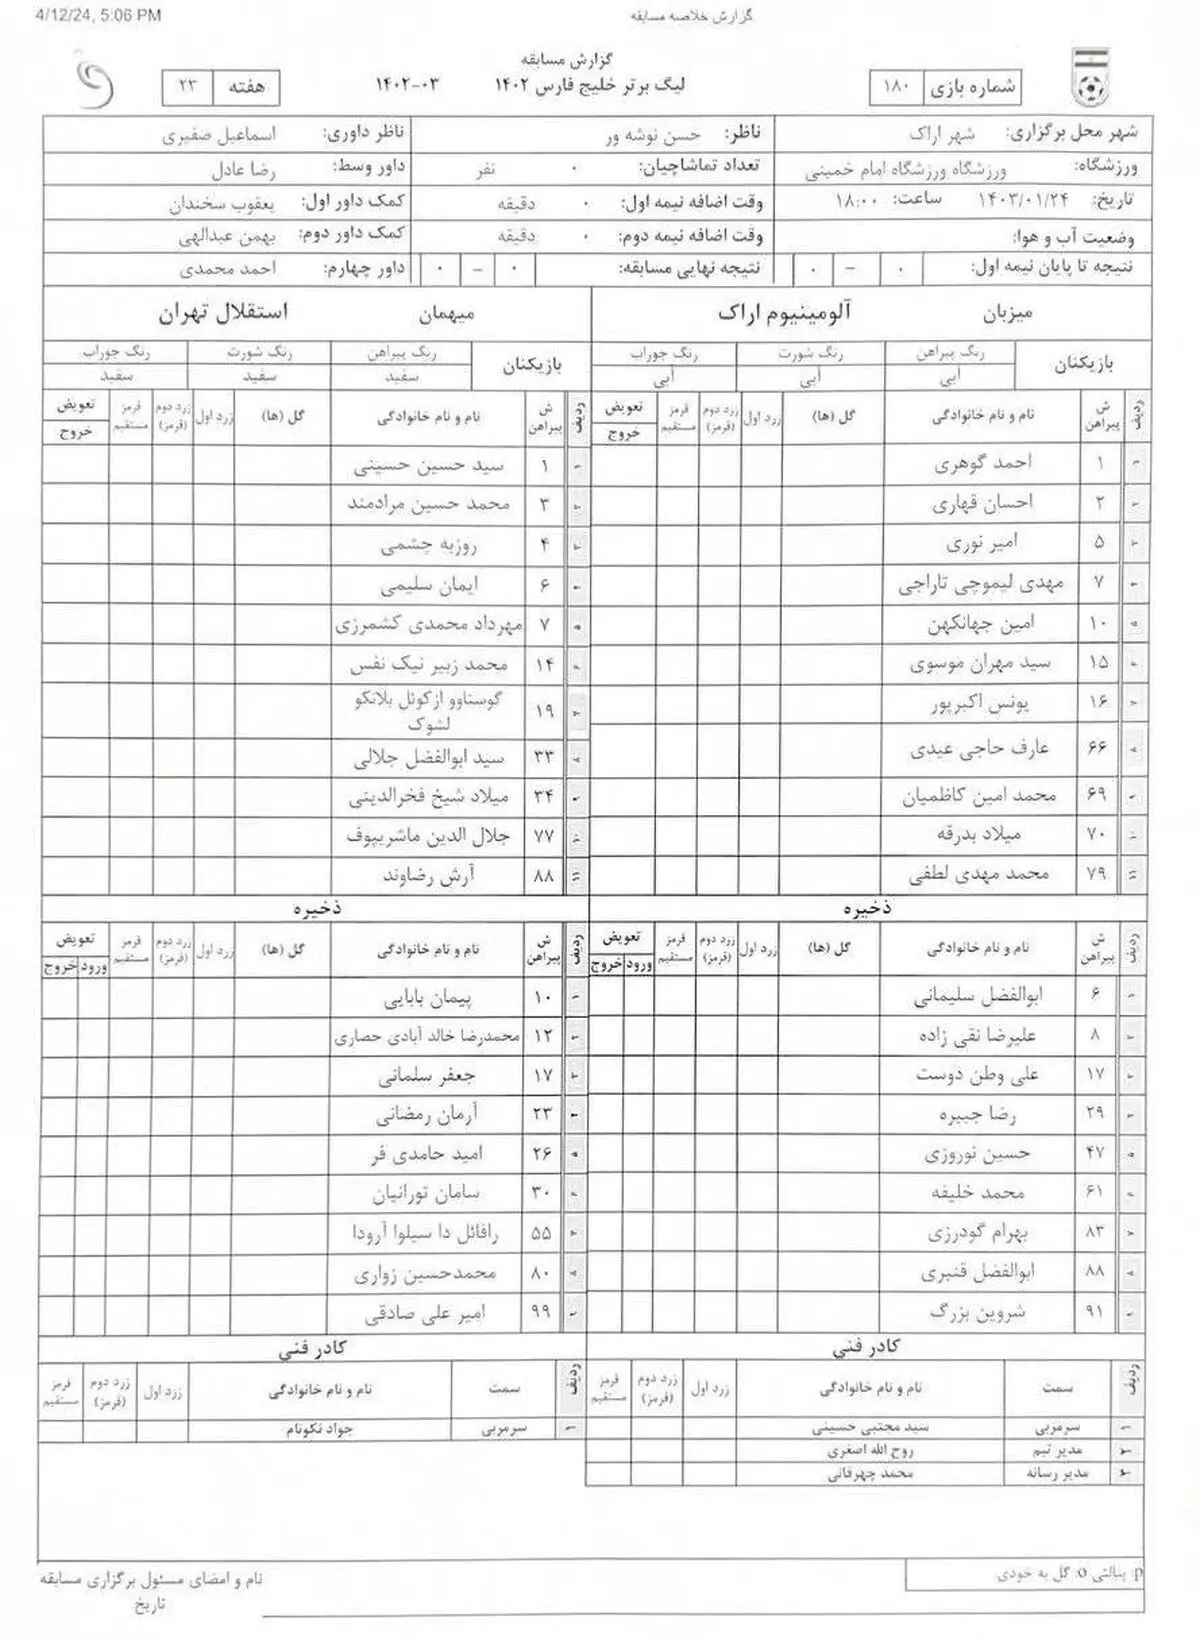 4/12/24, 5:06 PM گزارش خلاصه مسابقه
گزارش مسابقه
شماره بازی ۱۸۰ لیگ برتر خلیج فارس ۱۴۰۲ ۱۴۰۲-۰۳ هفته ۲۳
شهر محل برگزاری: شهر اراک ناظر: حسن نوشه ور ناظر داوری: اسماعیل صفیری
ورزشگاه: ورزشگاه ورزشگاه امام خمینی تعداد تماشاچیان: ۰ نفر داور وسط: رضا عادل
تاریخ: ۱۴۰۳/۰۱/۲۴ ساعت: ۱۸:۰۰ وقت اضافه نیمه اول: ۰ دقیقه کمک داور اول: یعقوب سخندان
وضعیت آب و هوا: وقت اضافه نیمه دوم: ۰ دقیقه کمک داور دوم: بهمن عبدالهی
نتیجه تا پایان نیمه اول: ۰ - ۰ نتیجه نهایی مسابقه: ۰ - ۰ داور چهارم: احمد محمدی
میزبان آلومینیوم اراک
بازیکنان رنگ پیراهن رنگ شورت رنگ جوراب
آبی آبی آبی
ردیف ش پیراهن نام و نام خانوادگی گل (ها) زرد اول زرد دوم (قرمز) قرمز مستقیم تعویض خروج
۱ ۱ احمد گوهری
۲ ۲ احسان قهاری
۳ ۵ امیر نوری
۴ ۷ مهدی لیموچی تاراجی
۵ ۱۰ امین جهانکهن
۶ ۱۵ سید مهران موسوی
۷ ۱۶ یونس اکبرپور
۸ ۶۶ عارف حاجی عیدی
۹ ۶۹ محمد امین کاظمیان
۱۰ ۷۰ میلاد بدرقه
۱۱ ۷۹ محمد مهدی لطفی
ذخیره
ردیف ش پیراهن نام و نام خانوادگی گل (ها) زرد اول زرد دوم (قرمز) قرمز مستقیم تعویض ورود خروج
۱ ۶ ابوالفضل سلیمانی
۲ ۸ علیرضا نقی زاده
۳ ۱۷ علی وطن دوست
۴ ۲۹ رضا جبیره
۵ ۴۷ حسین نوروزی
۶ ۶۱ محمد خلیفه
۷ ۸۳ بهرام گودرزی
۸ ۸۸ ابوالفضل قنبری
۹ ۹۱ شروین بزرگ
کادر فنی
ردیف سمت نام و نام خانوادگی زرد اول زرد دوم (قرمز) قرمز مستقیم
۱ سرمربی سید مجتبی حسینی
۲ مدیر تیم روح الله اصغری
۳ مدیر رسانه محمد چهرقانی
میهمان استقلال تهران
بازیکنان رنگ پیراهن رنگ شورت رنگ جوراب
سفید سفید سفید
ردیف ش پیراهن نام و نام خانوادگی گل (ها) زرد اول زرد دوم (قرمز) قرمز مستقیم تعویض خروج
۱ ۱ سید حسین حسینی
۲ ۳ محمد حسین مرادمند
۳ ۴ روزبه چشمی
۴ ۶ ایمان سلیمی
۵ ۷ مهرداد محمدی کشمرزی
۶ ۱۴ محمد زبیر نیک نفس
۷ ۱۹ گوستاوو ازکوئل بلانکو
لشوک
۸ ۳۳ سید ابوالفضل جلالی
۹ ۳۴ میلاد شیخ فخرالدینی
۱۰ ۷۷ جلال الدین ماشریپوف
۱۱ ۸۸ آرش رضاوند
ذخیره
ردیف ش پیراهن نام و نام خانوادگی گل (ها) زرد اول زرد دوم (قرمز) قرمز مستقیم تعویض ورود خروج
۱ ۱۰ پیمان بابایی
۲ ۱۲ محمدرضا خالد آبادی حصاری
۳ ۱۷ جعفر سلمانی
۴ ۲۳ آرمان رمضانی
۵ ۲۶ امید حامدی فر
۶ ۳۰ سامان تورانیان
۷ ۵۵ رافائل دا سیلوا آرودا
۸ ۸۰ محمدحسین زواری
۹ ۹۹ امیر علی صادقی
کادر فنی
ردیف سمت نام و نام خانوادگی زرد اول زرد دوم (قرمز) قرمز مستقیم
۱ سرمربی جواد نکونام
p: پنالتی o: گل به خودی
نام و امضای مسئول برگزاری مسابقه
تاریخ